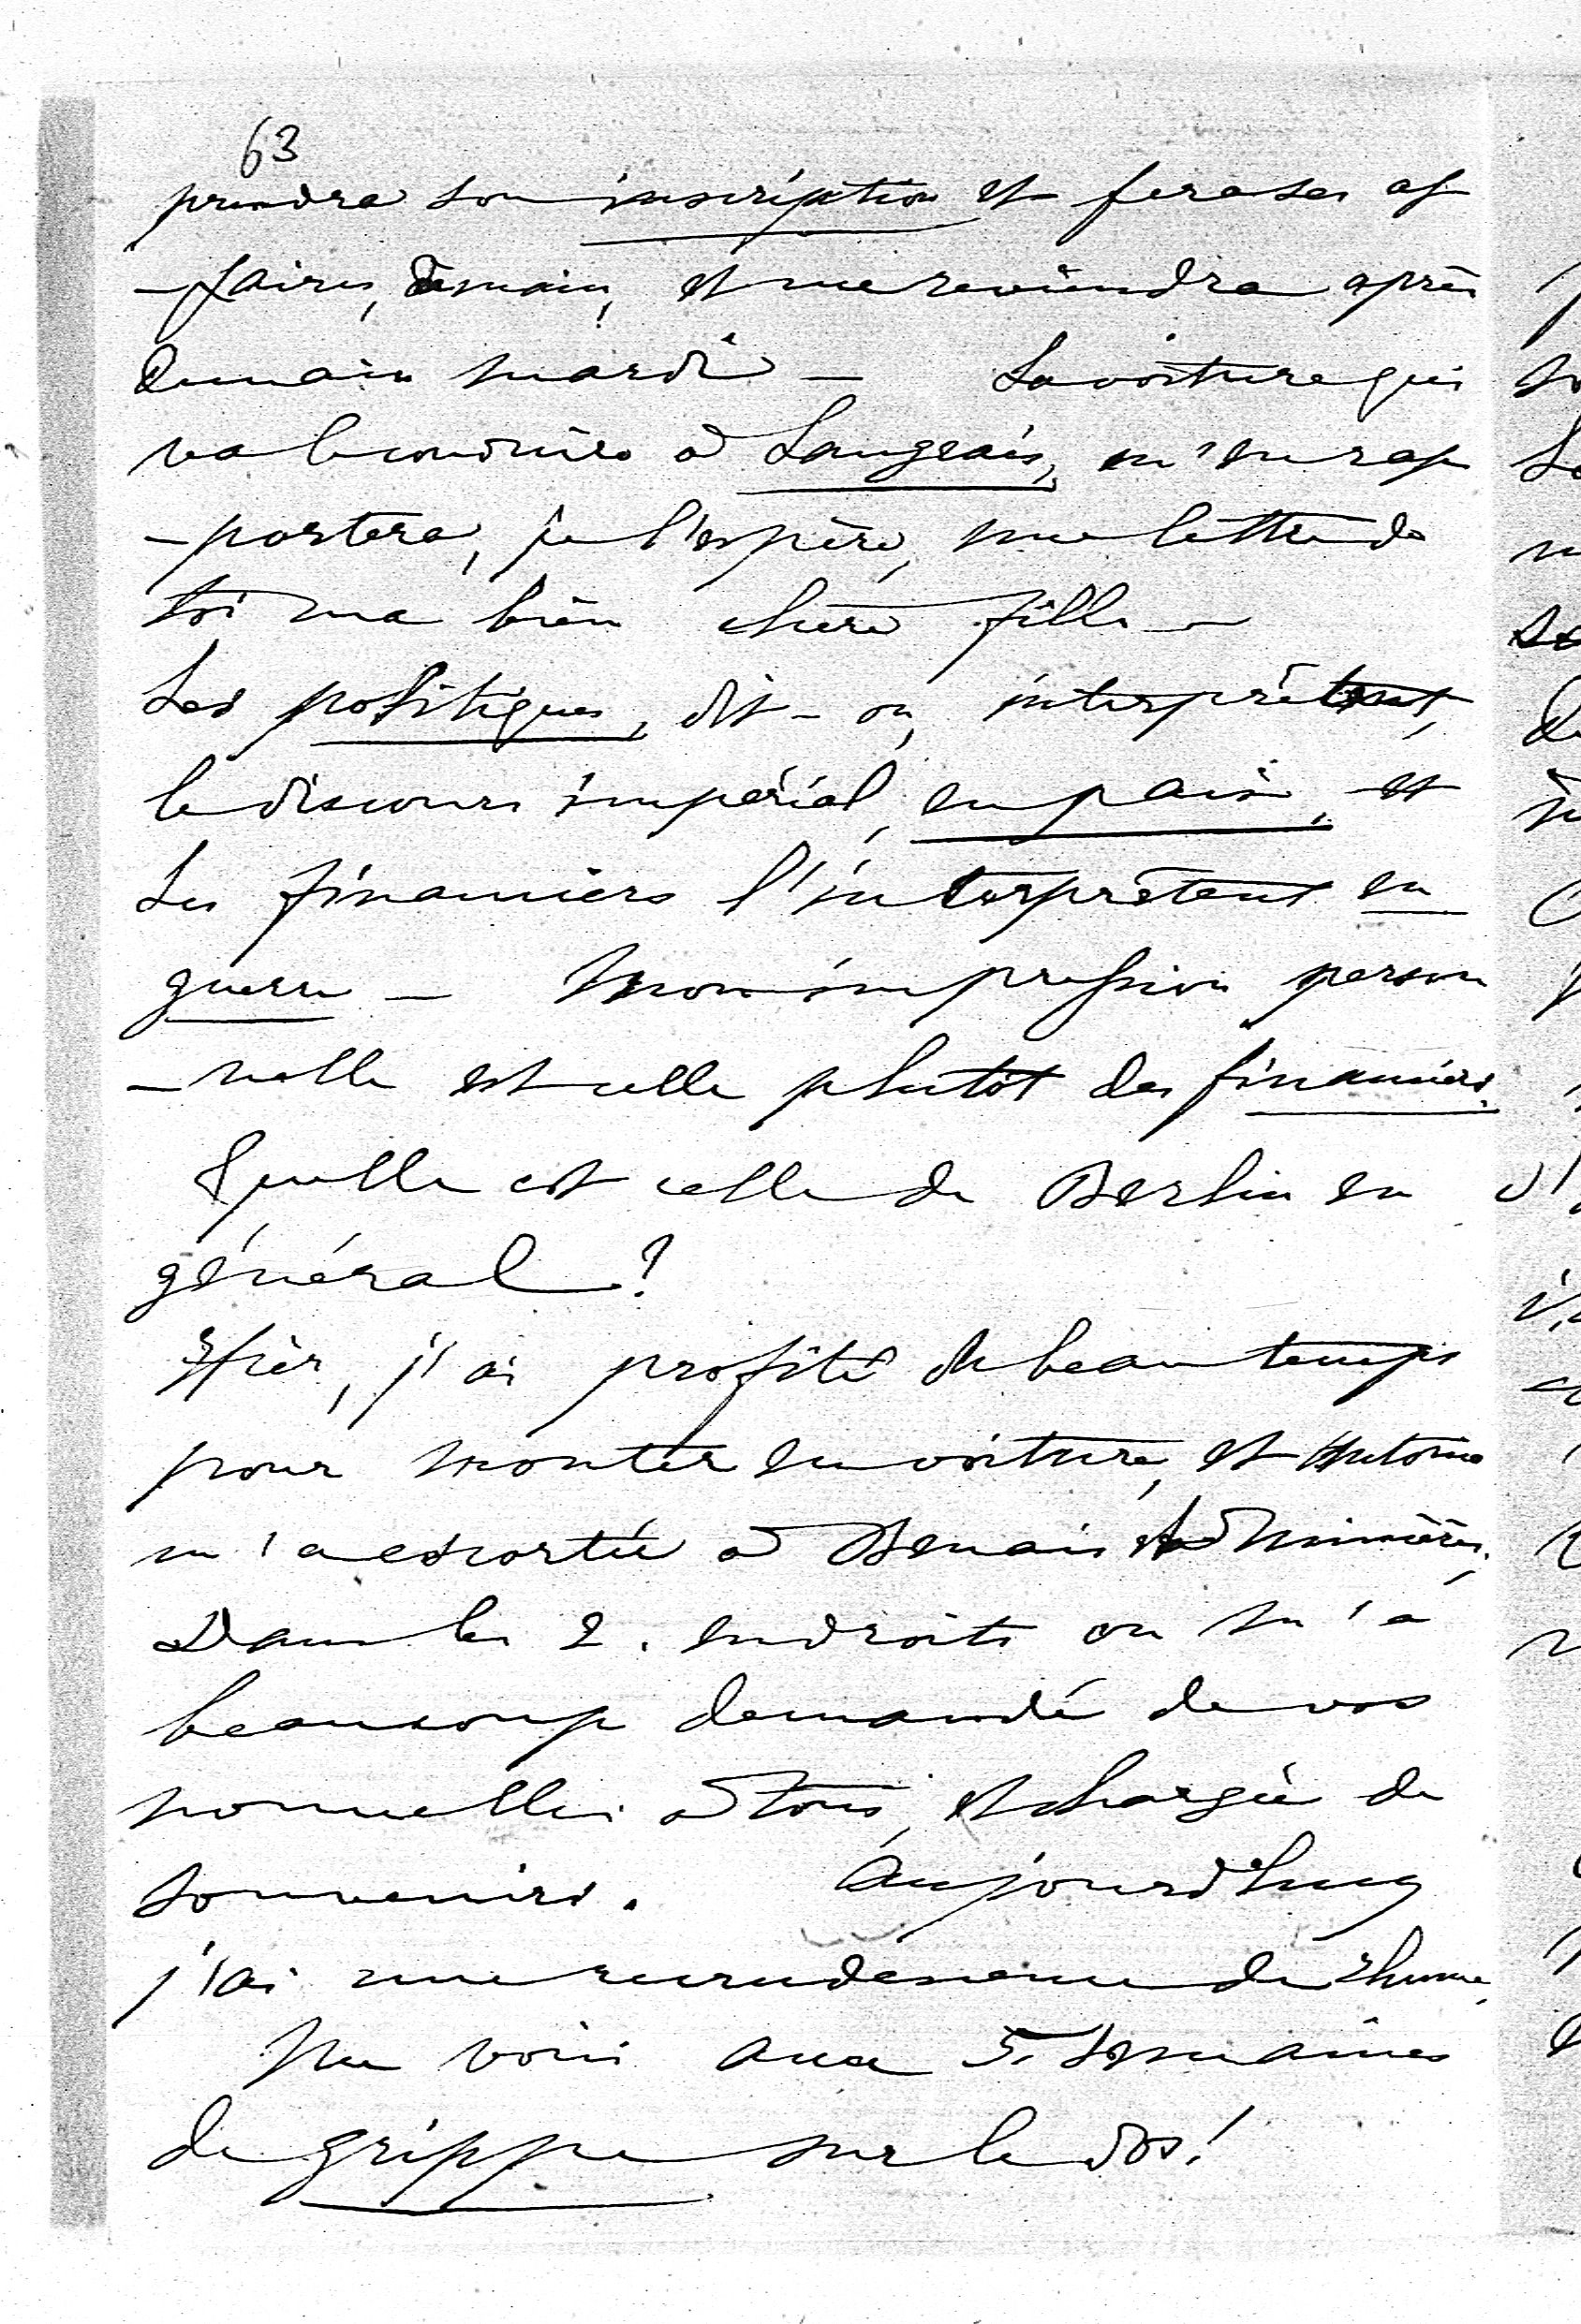 63
prendra son inscription et fera ses af
-faires, demain, et me reviendra après
demain mardi - La voiture qui
va le conduire à Langeais, m'en rap
-portera, je l'espère, une lettre de
toi ma bien chère fille -
Les politiques, dit-on, interprètent,
le discours impérial, en paix, et
les financiers l'interprètent en
guerre - Mon impression person
-nelle est celle plutôt des financiers.
Quelle est celle de Berlin en
général ?
Hier, j'ai profité du beau temps
pour monter en voiture, et Antoine
m'a escortée à Benais et à Minières.
Dans les 2. endroits on m'a
beaucoup demandé de vos
nouvelles à tous, et chargée de
souvenirs. Aujourd'huy
j'ai une recrudescence de rhume,
Me voici aux 5. semaines
de grippe sur le dos !